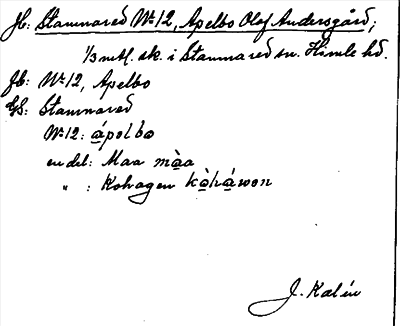 Jb: Stamnared No 12, Apelbo Olof Andersgård;
1/3 mtl. sk. i Stamnared sn. Himle hd.
Jb: No 12, Apelbo
GS: Stamnared
No 12: ápolbo
en del: Maa màa
" : Kohagen kòháwon
J. Kalén